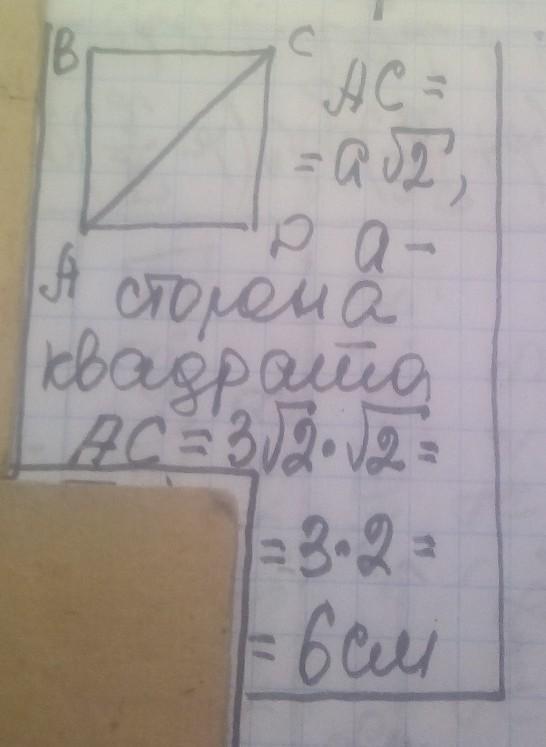 B C
AC =
= a√2,
A D a -
сторона
квадрата
AC = 3√2 · √2 =
= 3 · 2 =
= 6 см